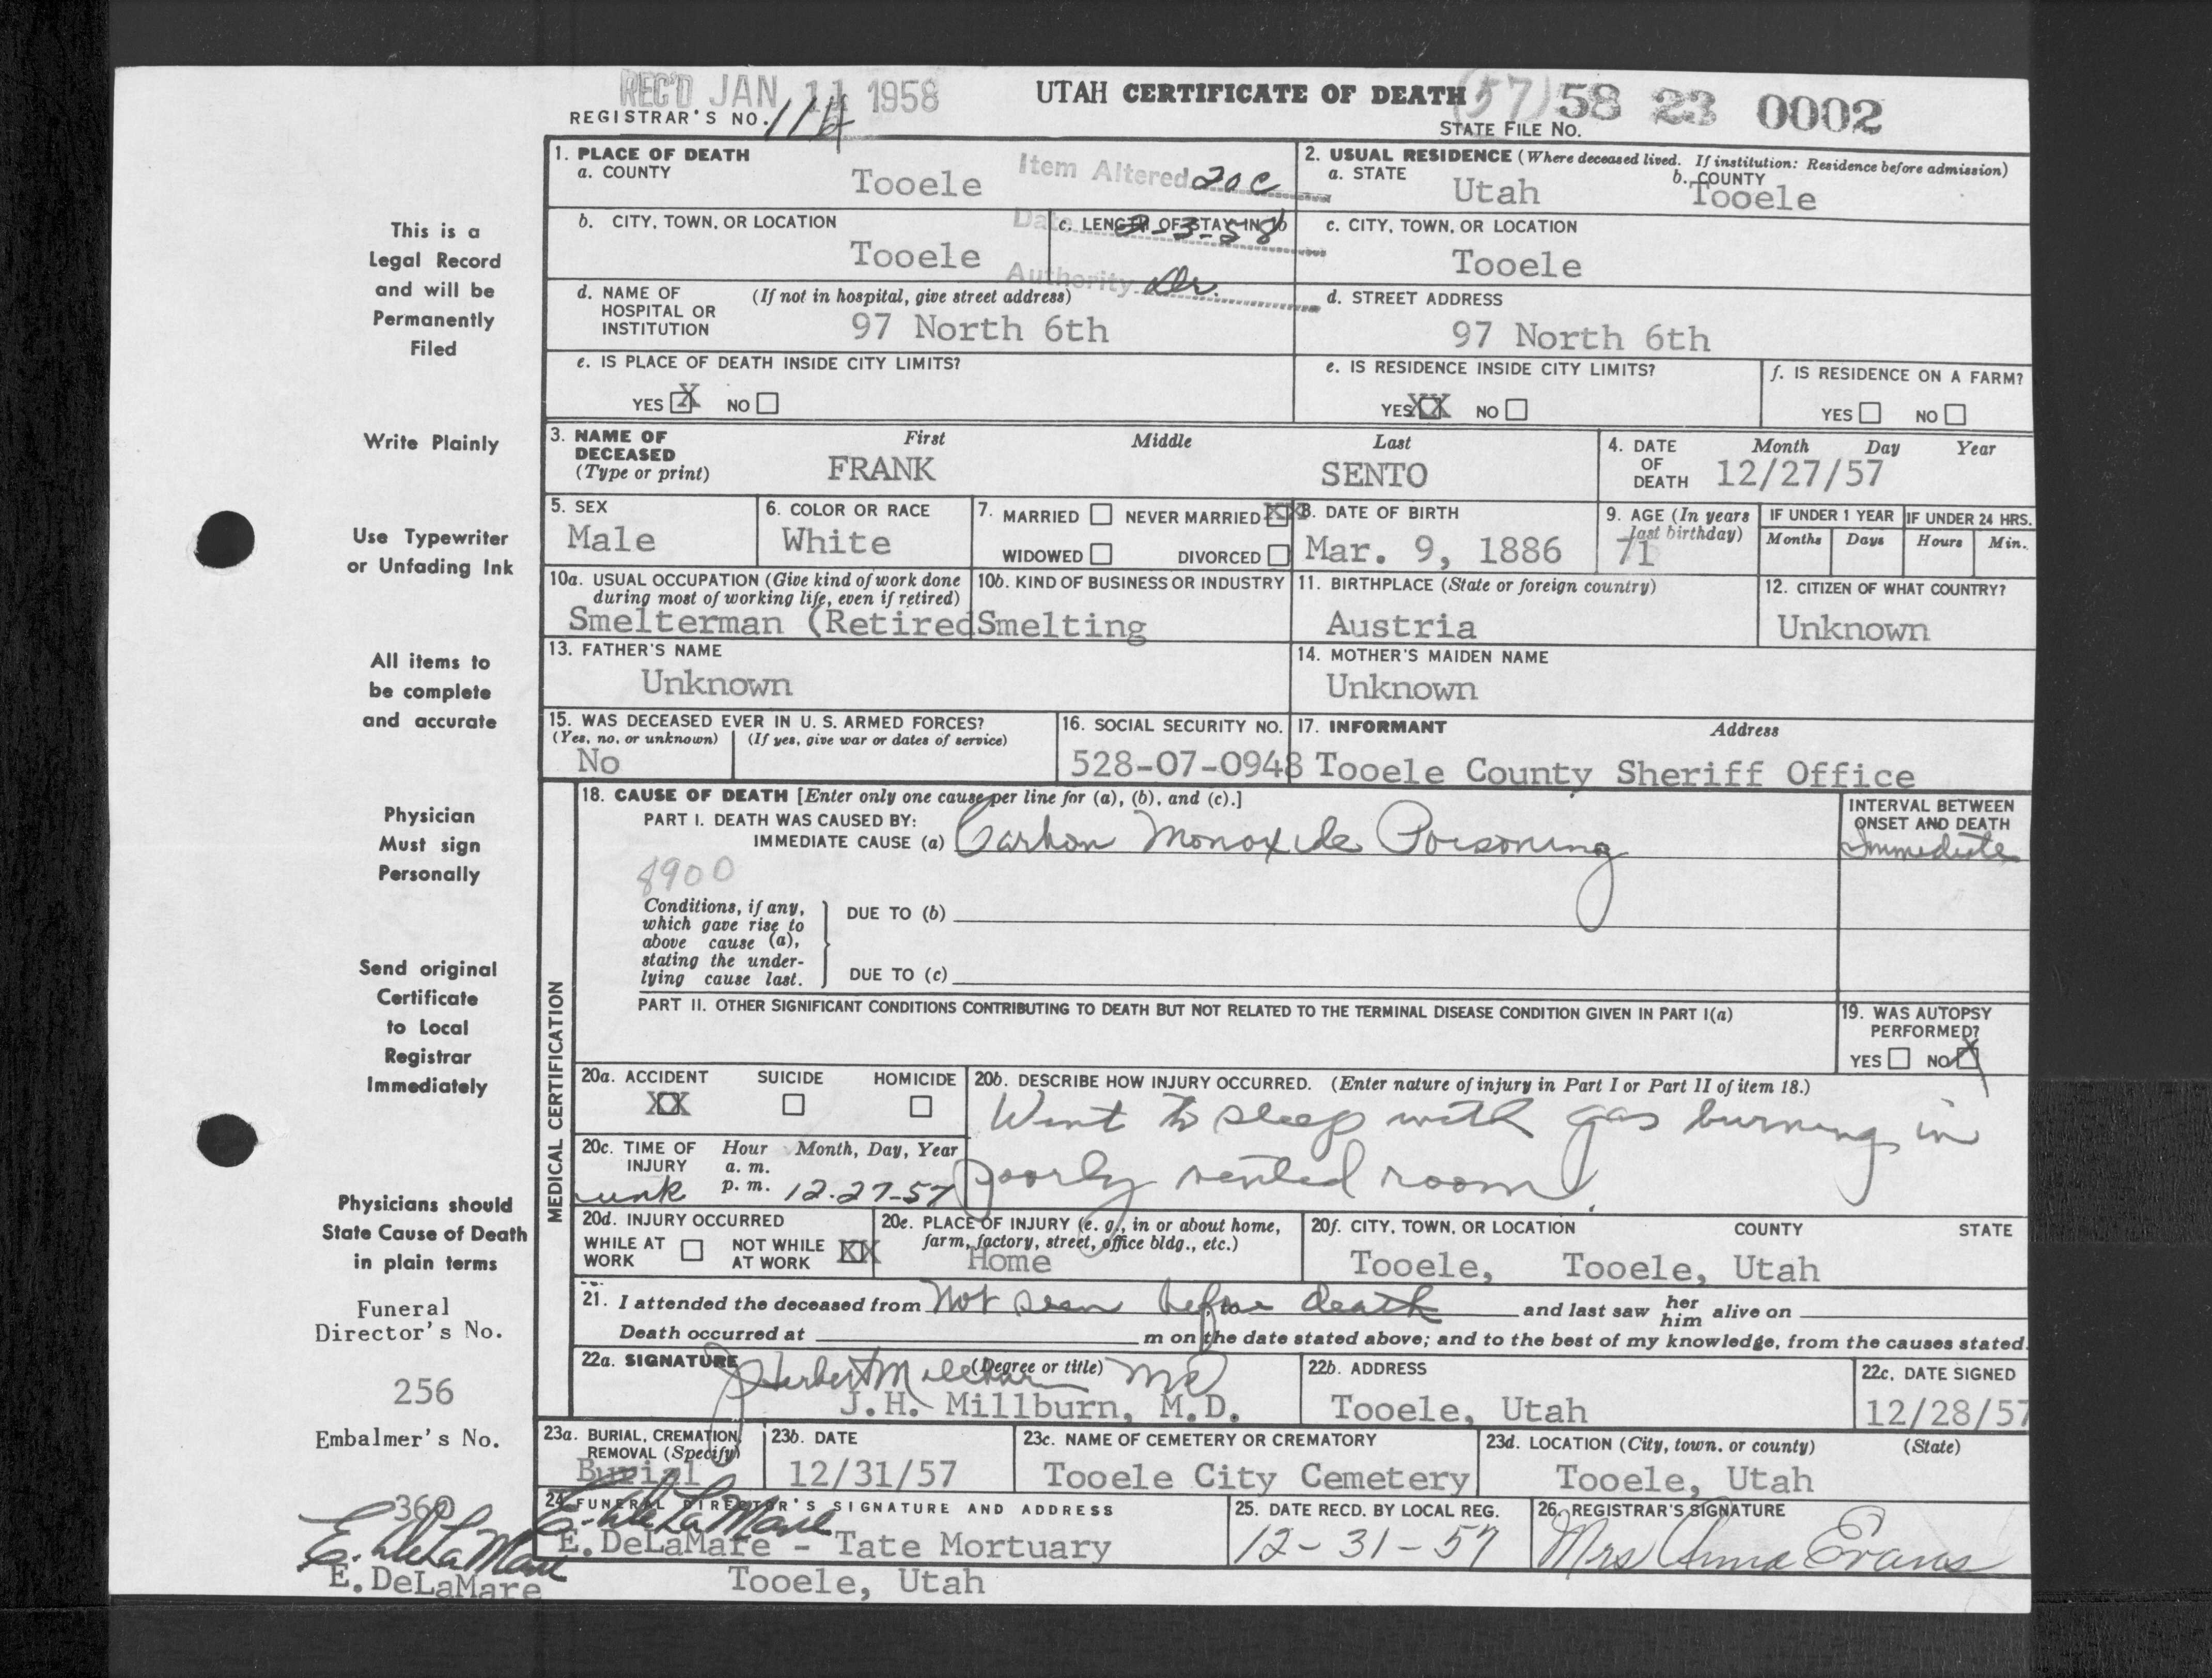 REC'D JAN 11 1958
UTAH CERTIFICATE OF DEATH (57) 58 23 0002
REGISTRAR'S NO. 114
STATE FILE NO.
This is a
Legal Record
and will be
Permanently
Filed
Write Plainly
Use Typewriter
or Unfading Ink
All items to
be complete
and accurate
Physician
Must sign
Personally
Send original
Certificate
to Local
Registrar
Immediately
Physicians should
State Cause of Death
in plain terms
Funeral
Director's No.
256
Embalmer's No.
360
E. DeLaMare
E. DeLaMare
1. PLACE OF DEATH
a. COUNTY
Tooele
Item Altered 20c
Date 2-3-58
Authority Dr.
2. USUAL RESIDENCE (Where deceased lived. If institution: Residence before admission)
a. STATE
Utah
b. COUNTY
Tooele
b. CITY, TOWN, OR LOCATION
Tooele
c. LENGTH OF STAY IN 1b
c. CITY, TOWN, OR LOCATION
Tooele
d. NAME OF HOSPITAL OR INSTITUTION
(If not in hospital, give street address)
97 North 6th
d. STREET ADDRESS
97 North 6th
e. IS PLACE OF DEATH INSIDE CITY LIMITS?
YES X NO
e. IS RESIDENCE INSIDE CITY LIMITS?
YES XX NO
f. IS RESIDENCE ON A FARM?
YES NO
3. NAME OF DECEASED
(Type or print)
First Middle Last
FRANK SENTO
4. DATE OF DEATH
Month Day Year
12/27/57
5. SEX
Male
6. COLOR OR RACE
White
7. MARRIED NEVER MARRIED XX
WIDOWED DIVORCED
8. DATE OF BIRTH
Mar. 9, 1886
9. AGE (In years last birthday)
71
IF UNDER 1 YEAR
Months Days
IF UNDER 24 HRS.
Hours Min.
10a. USUAL OCCUPATION (Give kind of work done during most of working life, even if retired)
Smelterman (Retired
10b. KIND OF BUSINESS OR INDUSTRY
Smelting
11. BIRTHPLACE (State or foreign country)
Austria
12. CITIZEN OF WHAT COUNTRY?
Unknown
13. FATHER'S NAME
Unknown
14. MOTHER'S MAIDEN NAME
Unknown
15. WAS DECEASED EVER IN U. S. ARMED FORCES?
(Yes, no, or unknown) (If yes, give war or dates of service)
No
16. SOCIAL SECURITY NO.
528-07-0948
17. INFORMANT Address
Tooele County Sheriff Office
MEDICAL CERTIFICATION
18. CAUSE OF DEATH [Enter only one cause per line for (a), (b), and (c).]
PART I. DEATH WAS CAUSED BY:
IMMEDIATE CAUSE (a) Carbon Monoxide Poisoning
INTERVAL BETWEEN ONSET AND DEATH
Immediate
8900
Conditions, if any,
which gave rise to
above cause (a),
stating the under-
lying cause last.
DUE TO (b)
DUE TO (c)
PART II. OTHER SIGNIFICANT CONDITIONS CONTRIBUTING TO DEATH BUT NOT RELATED TO THE TERMINAL DISEASE CONDITION GIVEN IN PART I(a)
19. WAS AUTOPSY PERFORMED?
YES NO X
20a. ACCIDENT SUICIDE HOMICIDE
XX
20b. DESCRIBE HOW INJURY OCCURRED. (Enter nature of injury in Part I or Part II of item 18.)
Went to sleep with gas burning in
poorly vented room.
20c. TIME OF INJURY
Hour Month, Day, Year
a. m.
p. m.
unk 12-27-57
20d. INJURY OCCURRED
WHILE AT WORK NOT WHILE AT WORK XX
20e. PLACE OF INJURY (e. g., in or about home, farm, factory, street, office bldg., etc.)
Home
20f. CITY, TOWN, OR LOCATION COUNTY STATE
Tooele, Tooele, Utah
21. I attended the deceased from Not seen before death and last saw her him alive on
Death occurred at m on the date stated above; and to the best of my knowledge, from the causes stated.
22a. SIGNATURE (Degree or title)
J Herbert Millburn MD
J.H. Millburn, M.D.
22b. ADDRESS
Tooele, Utah
22c. DATE SIGNED
12/28/57
23a. BURIAL, CREMATION, REMOVAL (Specify)
Burial
23b. DATE
12/31/57
23c. NAME OF CEMETERY OR CREMATORY
Tooele City Cemetery
23d. LOCATION (City, town, or county) (State)
Tooele, Utah
24. FUNERAL DIRECTOR'S SIGNATURE AND ADDRESS
E. DeLaMare
E. DeLaMare - Tate Mortuary
Tooele, Utah
25. DATE RECD. BY LOCAL REG.
12-31-57
26. REGISTRAR'S SIGNATURE
Mrs Anna Evans